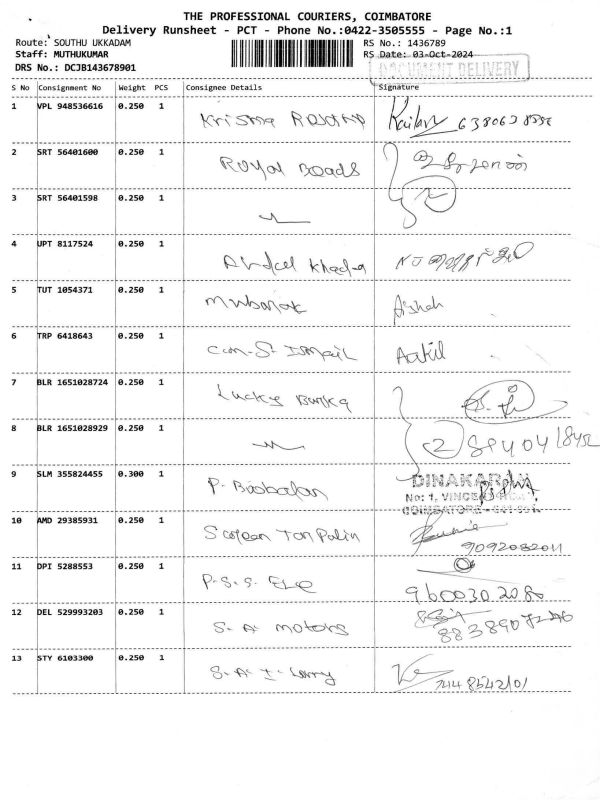 THE PROFESSIONAL COURIERS, COIMBATORE
Delivery Runsheet - PCT - Phone No.:0422-3505555 - Page No.:1
Route: SOUTHU UKKADAM RS No.: 1436789
Staff: MUTHUKUMAR RS Date: 03-Oct-2024
DRS No.: DCJB143678901 DOCUMENT DELIVERY
S No Consignment No Weight PCS Consignee Details Signature
1 VPL 948536616 0.250 1 Krisma
2 SRT 56401600 0.250 1 Royal Beads
3 SRT 56401598 0.250 1
4 UPT 8117524 0.250 1
5 TUT 1054371 0.250 1 Mubarak Aishah
6 TRP 6418643 0.250 1 com-S- Ismail Aakil
7 BLR 1651028724 0.250 1 Lucky
8 BLR 1651028929 0.250 1 2
9 SLM 355824455 0.300 1 P. Boobalan DINAKARAN
No: 1,
COIMBATORE
10 AMD 29385931 0.250 1 9092082011
11 DPI 5288553 0.250 1 P.S.S. ELE 9600302080
12 DEL 529993203 0.250 1 S.A. motors
13 STY 6103300 0.250 1 S.A.I. Lorry 7448542101